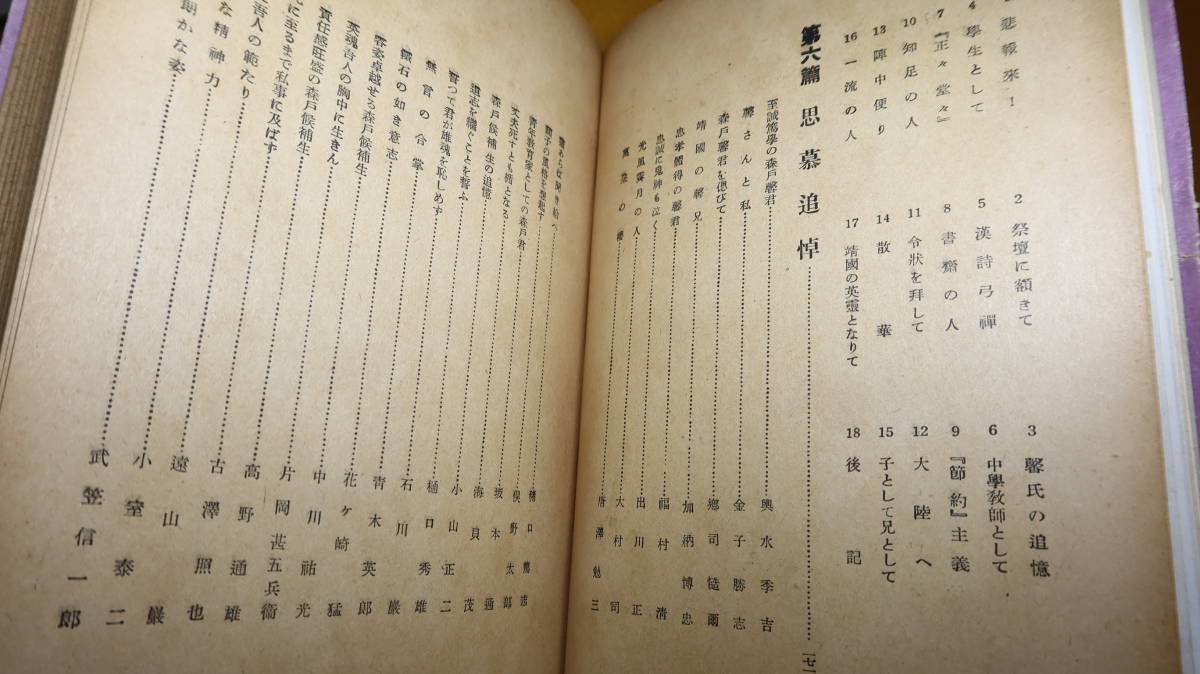 悲報來!
2 祭壇に額きて
3 馨氏の追憶
4 學生として
5 漢詩弓禪
6 中學敎師として
7 『正々堂々』
8 書齋の人
9 『節約』主義
10 知足の人
11 令狀を拜して
12 大陸へ
13 陣中便り
14 散華
15 子として兄として
16 一流の人
17 靖國の英靈となりて
18 後記
第六篇 思慕追悼 一七一
至誠篤學の森戶馨君 輿水季吉
馨さんと私 金子勝志
森戶馨君を偲びて 鄕司愷爾
靖國の馨兄 加納博忠
忠孝體得の馨君 福村淸
忠誠に鬼神も泣く 出川正
光風霽月の人 大村司
萬朶の櫻 唐澤勉三
靈あらば聞き給へ 樋口鶴志
君子の風格を想起す 俣野太郞
靑年敎育家としての森戶君 坂本通
丈夫死すとも楯となる 海貝茂
森戶候補生の追憶 小山正二
遺志を繼ぐことを誓ふ 樋口秀雄
誓つて君が雄魂を恥しめず 石川巖
無言の合掌 靑木英郞
鐵石の如き意志 花ケ崎猛
容姿卓越せる森戶候補生 中川祐光
英魂吾人の胸中に生きん 片岡甚五兵衞
責任感旺盛の森戶候補生 高野通雄
に至るまで私事に及ばず 古澤照也
吾人の範たり 遠山巖
な精神力 小室泰二
朗かな姿 武笠信一郞